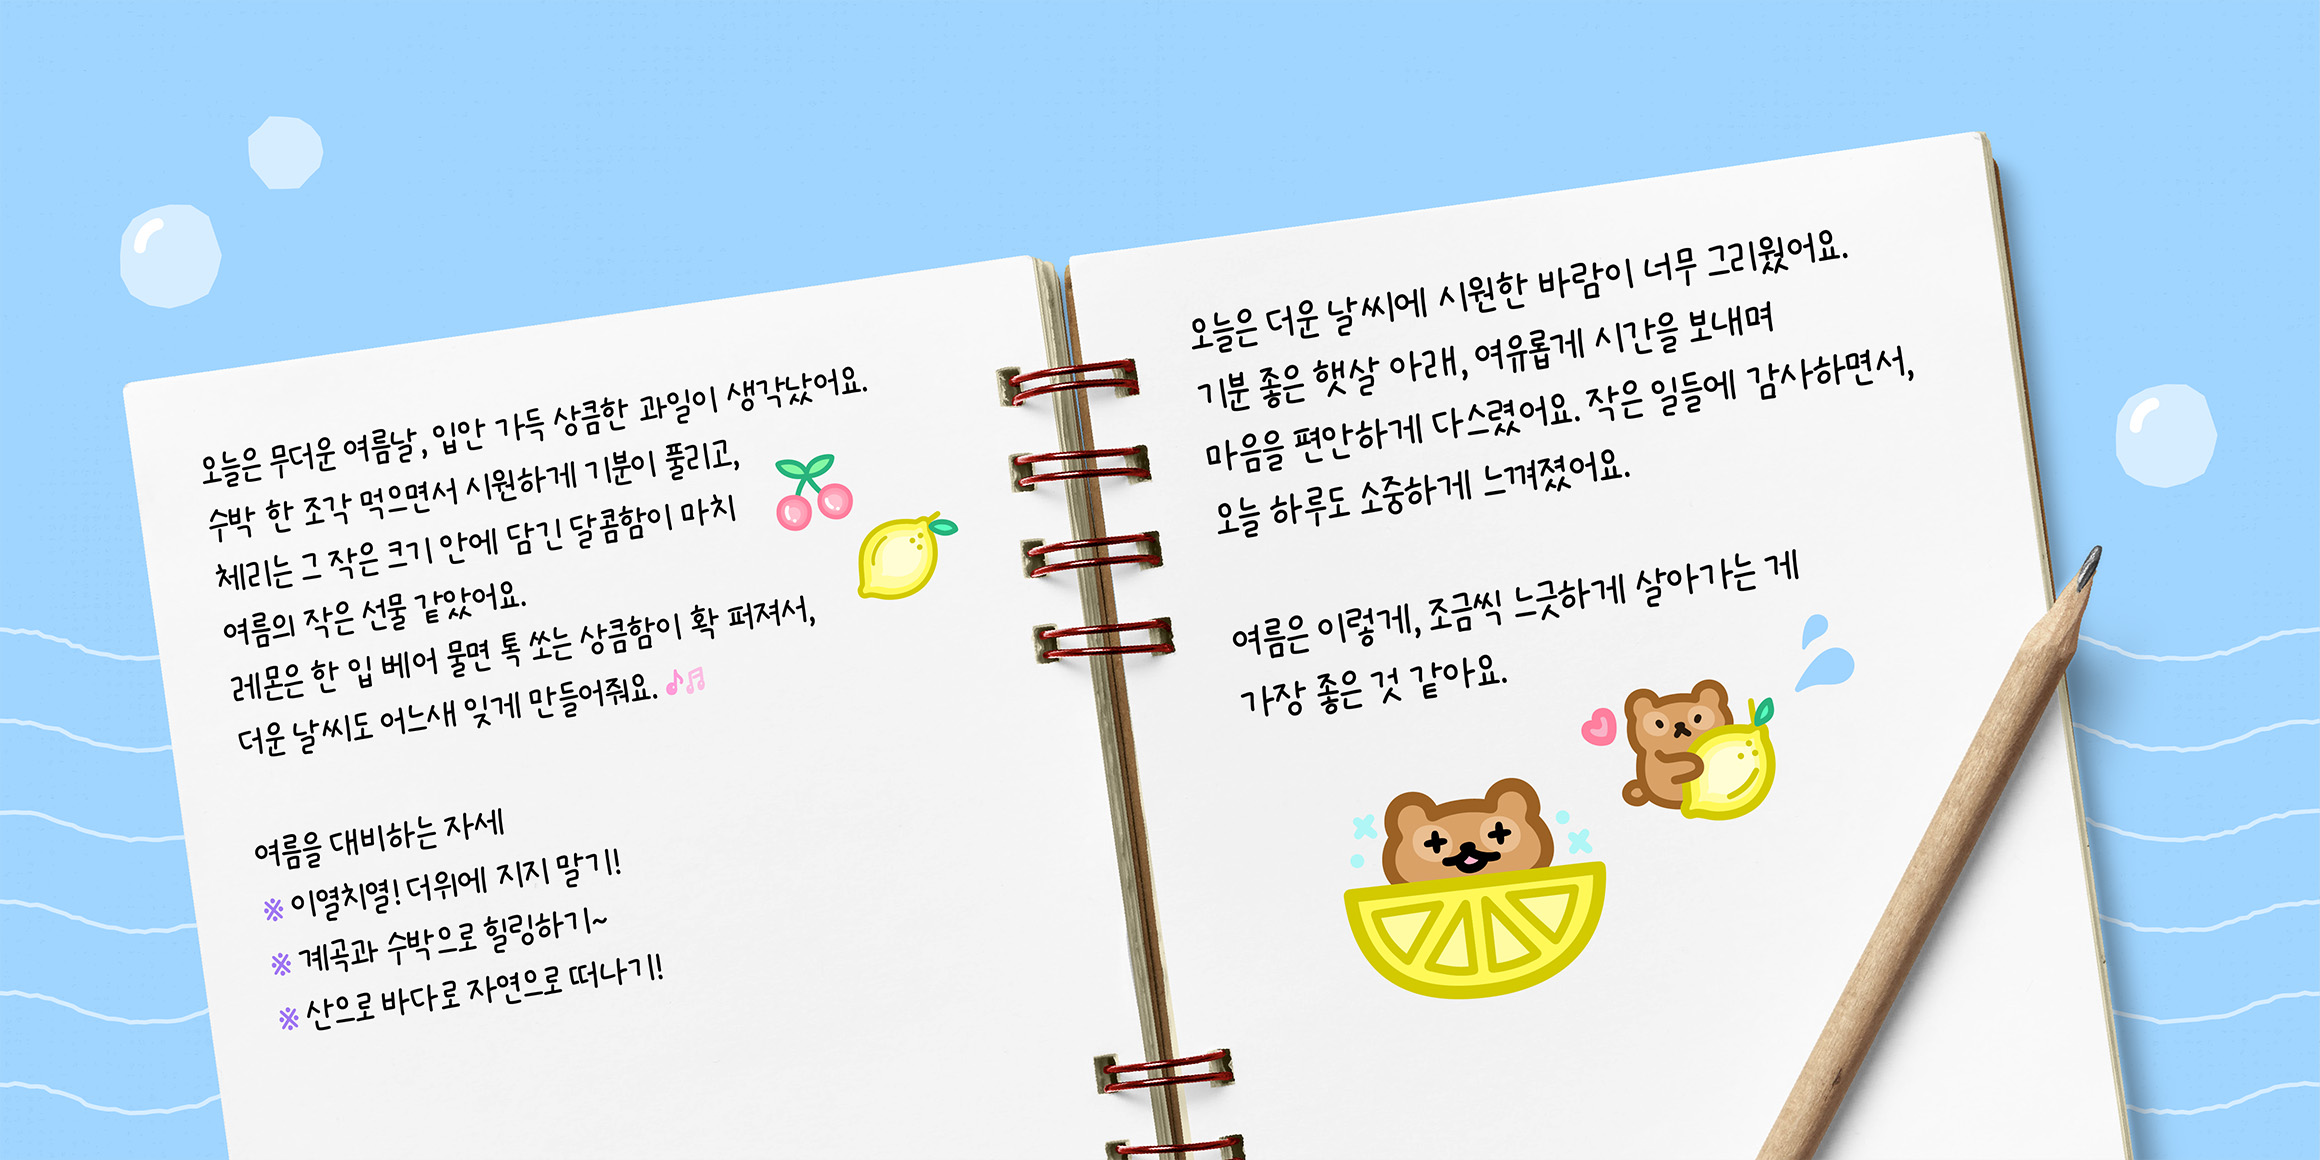 오늘은 무더운 여름날, 입안 가득 상큼한 과일이 생각났어요.
수박 한 조각 먹으면서 시원하게 기분이 풀리고,
체리는 그 작은 크기 안에 담긴 달콤함이 마치
여름의 작은 선물 같았어요.
레몬은 한 입 베어 물면 톡 쏘는 상큼함이 확 퍼져서,
더운 날씨도 어느새 잊게 만들어줘요. 🎵🎶
여름을 대비하는 자세
※ 이열치열! 더위에 지지 말기!
※ 계곡과 수박으로 힐링하기~
※ 산으로 바다로 자연으로 떠나기!
오늘은 더운 날씨에 시원한 바람이 너무 그리웠어요.
기분 좋은 햇살 아래, 여유롭게 시간을 보내며
마음을 편안하게 다스렸어요. 작은 일들에 감사하면서,
오늘 하루도 소중하게 느껴졌어요.
여름은 이렇게, 조금씩 느긋하게 살아가는 게
가장 좋은 것 같아요.